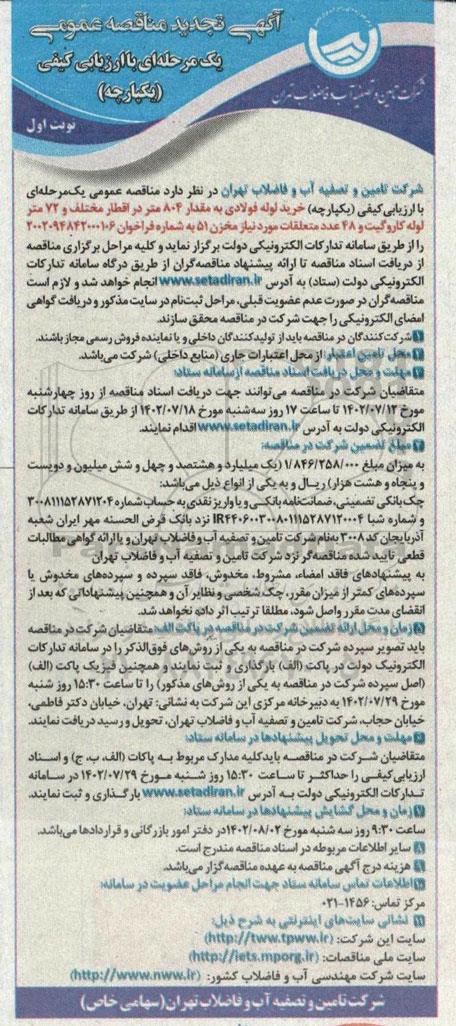 آگهی تجدید مناقصه عمومی
یک مرحله‌ای با ارزیابی کیفی
(یکپارچه)
نوبت اول
شرکت تامین و تصفیه آب و فاضلاب تهران
شرکت تامین و تصفیه آب و فاضلاب تهران در نظر دارد مناقصه عمومی یک‌مرحله‌ای
با ارزیابی کیفی (یکپارچه) خرید لوله فولادی به مقدار ۸۰۴ متر در اقطار مختلف و ۷۲ متر
لوله کاروگیت و ۴۸ عدد متعلقات مورد نیاز مخزن ۵۱ به شماره فراخوان ۲۰۰۲۰۹۴۸۴۲۰۰۰۱۰۶
را از طریق سامانه تدارکات الکترونیکی دولت برگزار نماید و کلیه مراحل برگزاری مناقصه
از دریافت اسناد مناقصه تا ارائه پیشنهاد مناقصه‌گران از طریق درگاه سامانه تدارکات
الکترونیکی دولت (ستاد) به آدرس www.setadiran.ir انجام خواهد شد و لازم است
مناقصه‌گران در صورت عدم عضویت قبلی، مراحل ثبت‌نام در سایت مذکور و دریافت گواهی
امضای الکترونیکی را جهت شرکت در مناقصه محقق سازند.
۱ شرکت‌کنندگان در مناقصه باید از تولیدکنندگان داخلی و یا نماینده فروش رسمی مجاز باشند.
۲ محل تامین اعتبار: از محل اعتبارات جاری (منابع داخلی) شرکت می‌باشد.
۳ مهلت و محل دریافت اسناد مناقصه از سامانه ستاد:
متقاضیان شرکت در مناقصه می‌توانند جهت دریافت اسناد مناقصه از روز چهارشنبه
مورخ ۱۴۰۲/۰۷/۱۲ تا ساعت ۱۷ روز سه‌شنبه مورخ ۱۴۰۲/۰۷/۱۸ از طریق سامانه تدارکات
الکترونیکی دولت به آدرس www.setadiran.ir اقدام نمایند.
۴ مبلغ تضمین شرکت در مناقصه:
به میزان مبلغ ۱/۸۴۶/۲۵۸/۰۰۰ (یک میلیارد و هشتصد و چهل و شش میلیون و دویست
و پنجاه و هشت هزار) ریال و به یکی از انواع ذیل می‌باشد:
چک بانکی تضمینی، ضمانت‌نامه بانکی و یا واریز نقدی به حساب شماره ۳۰۰۸۱۱۱۵۲۸۷۱۲۰۴
و شماره شبا IR۴۴۰۶۰۰۳۰۰۸۰۱۱۱۵۲۸۷۱۲۰۰۴ نزد بانک قرض الحسنه مهر ایران شعبه
آذربایجان کد ۳۰۰۸ به‌نام شرکت تامین و تصفیه آب و فاضلاب تهران و یا ارائه گواهی مطالبات
قطعی تایید شده مناقصه‌گر نزد شرکت تامین و تصفیه آب و فاضلاب تهران
به پیشنهادهای فاقد امضاء، مشروط، مخدوش، فاقد سپرده و سپرده‌های مخدوش یا
سپرده‌های کمتر از میزان مقرر، چک شخصی و نظایر آن و همچنین پیشنهاداتی که بعد از
انقضای مدت مقرر واصل شود، مطلقا ترتیب اثر داده نخواهد شد.
۵ زمان و محل ارائه تضمین شرکت در مناقصه در پاکت الف: متقاضیان شرکت در مناقصه
باید تصویر سپرده شرکت در مناقصه به یکی از روش‌های فوق‌الذکر را در سامانه تدارکات
الکترونیک دولت در پاکت (الف) بارگذاری و ثبت نمایند و همچنین فیزیک پاکت (الف)
(اصل سپرده شرکت در مناقصه به یکی از روش‌های مذکور) را تا ساعت ۱۵:۳۰ روز شنبه
مورخ ۱۴۰۲/۰۷/۲۹ به دبیرخانه مرکزی این شرکت به نشانی: تهران، خیابان دکتر فاطمی،
خیابان حجاب، شرکت تامین و تصفیه آب و فاضلاب تهران، تحویل و رسید دریافت نمایند.
۶ مهلت و محل تحویل پیشنهادها در سامانه ستاد:
متقاضیان شرکت در مناقصه باید کلیه مدارک مربوط به پاکات (الف، ب، ج) و اسناد
ارزیابی کیفی را حداکثر تا ساعت ۱۵:۳۰ روز شنبه مورخ ۱۴۰۲/۰۷/۲۹ در سامانه
تدارکات الکترونیکی دولت به آدرس www.setadiran.ir بارگذاری و ثبت نمایند.
۷ زمان و محل گشایش پیشنهادها در سامانه ستاد:
ساعت ۹:۳۰ روز سه شنبه مورخ ۱۴۰۲/۰۸/۰۲ در دفتر امور بازرگانی و قراردادها می‌باشد.
۸ سایر اطلاعات مربوطه در اسناد مناقصه مندرج است.
۹ هزینه درج آگهی مناقصه به عهده مناقصه‌گزار می‌باشد.
۱۰ اطلاعات تماس سامانه ستاد جهت انجام مراحل عضویت در سامانه:
مرکز تماس: ۱۴۵۶-۰۲۱
۱۱ نشانی سایت‌های اینترنتی به شرح ذیل:
سایت این شرکت: (http://tww.tpww.ir)
سایت ملی مناقصات: (http://iets.mporg.ir)
سایت شرکت مهندسی آب و فاضلاب کشور: (http://www.nww.ir)
شرکت تامین و تصفیه آب و فاضلاب تهران (سهامی خاص)